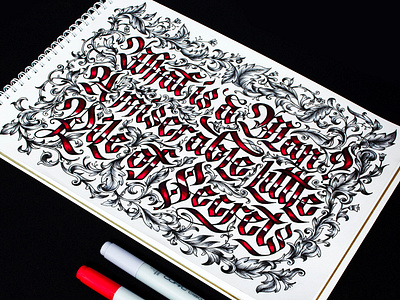 What is a Man?
A miserable little
Pile of
Secrets